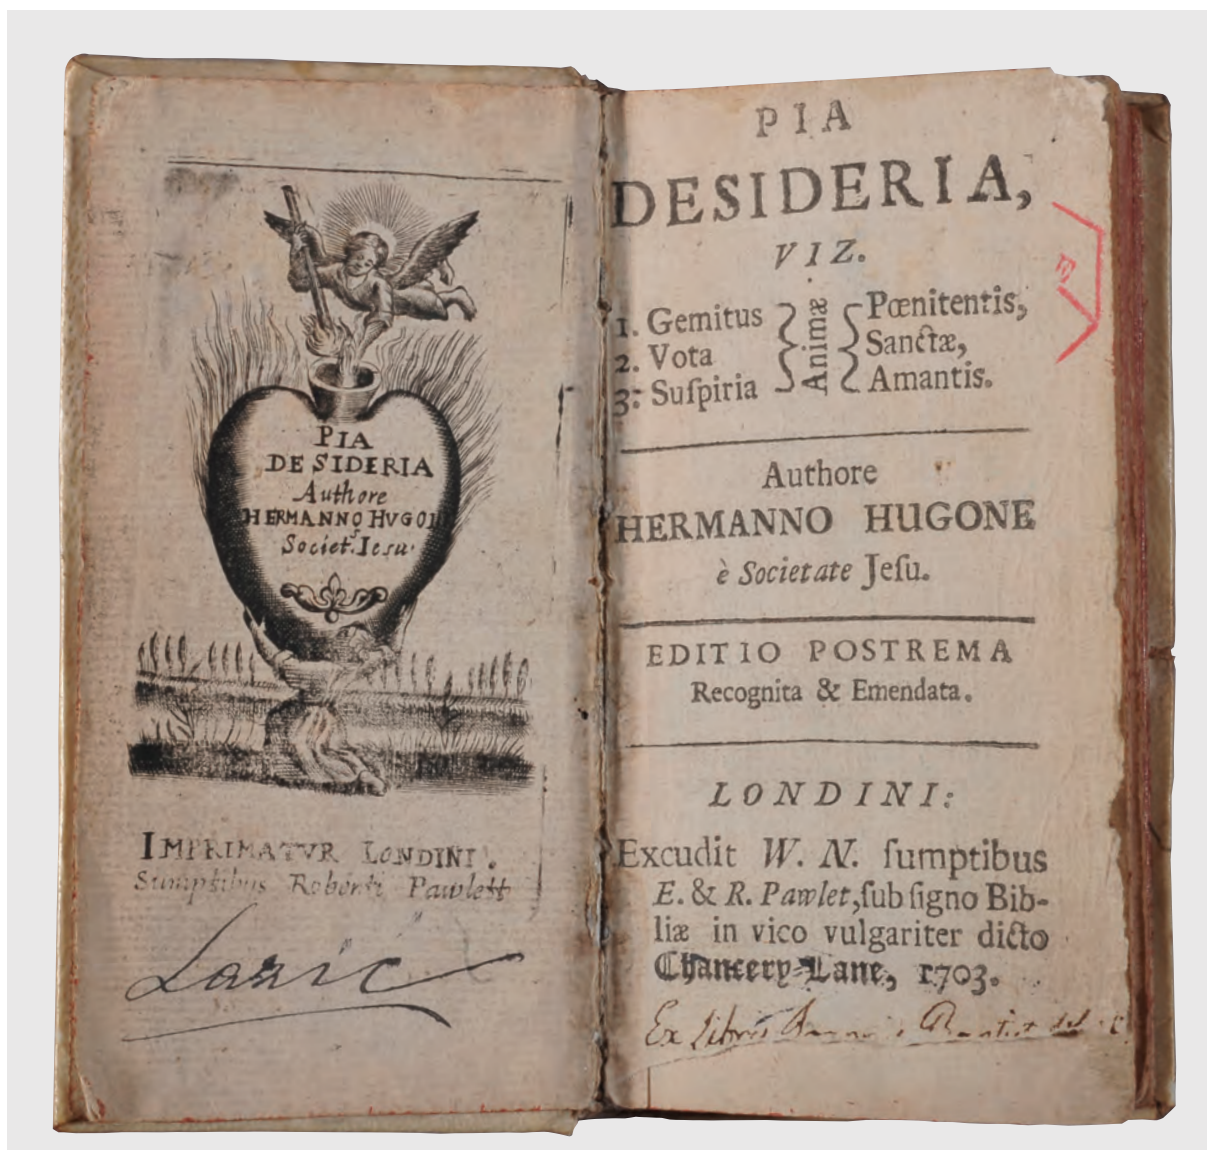 PIA
DESIDERIA
Authore
HERMANNO HVGO
Societ.s Iesu
IMPRIMATVR LONDINI.
Sumptibus Roberti Pawlett
PIA
DESIDERIA,
VIZ.
1. Gemitus
2. Vota
3. Suſpiria
Animæ
Pœnitentis,
Sanctæ,
Amantis.
E
Authore
HERMANNO HUGONE
è Societate Jeſu.
EDITIO POSTREMA
Recognita & Emendata.
LONDINI:
Excudit W. N. ſumptibus
E. & R. Pawlet, ſub ſigno Bib-
liæ in vico vulgariter dicto
Chancery-Lane, 1703.
Ex Libris